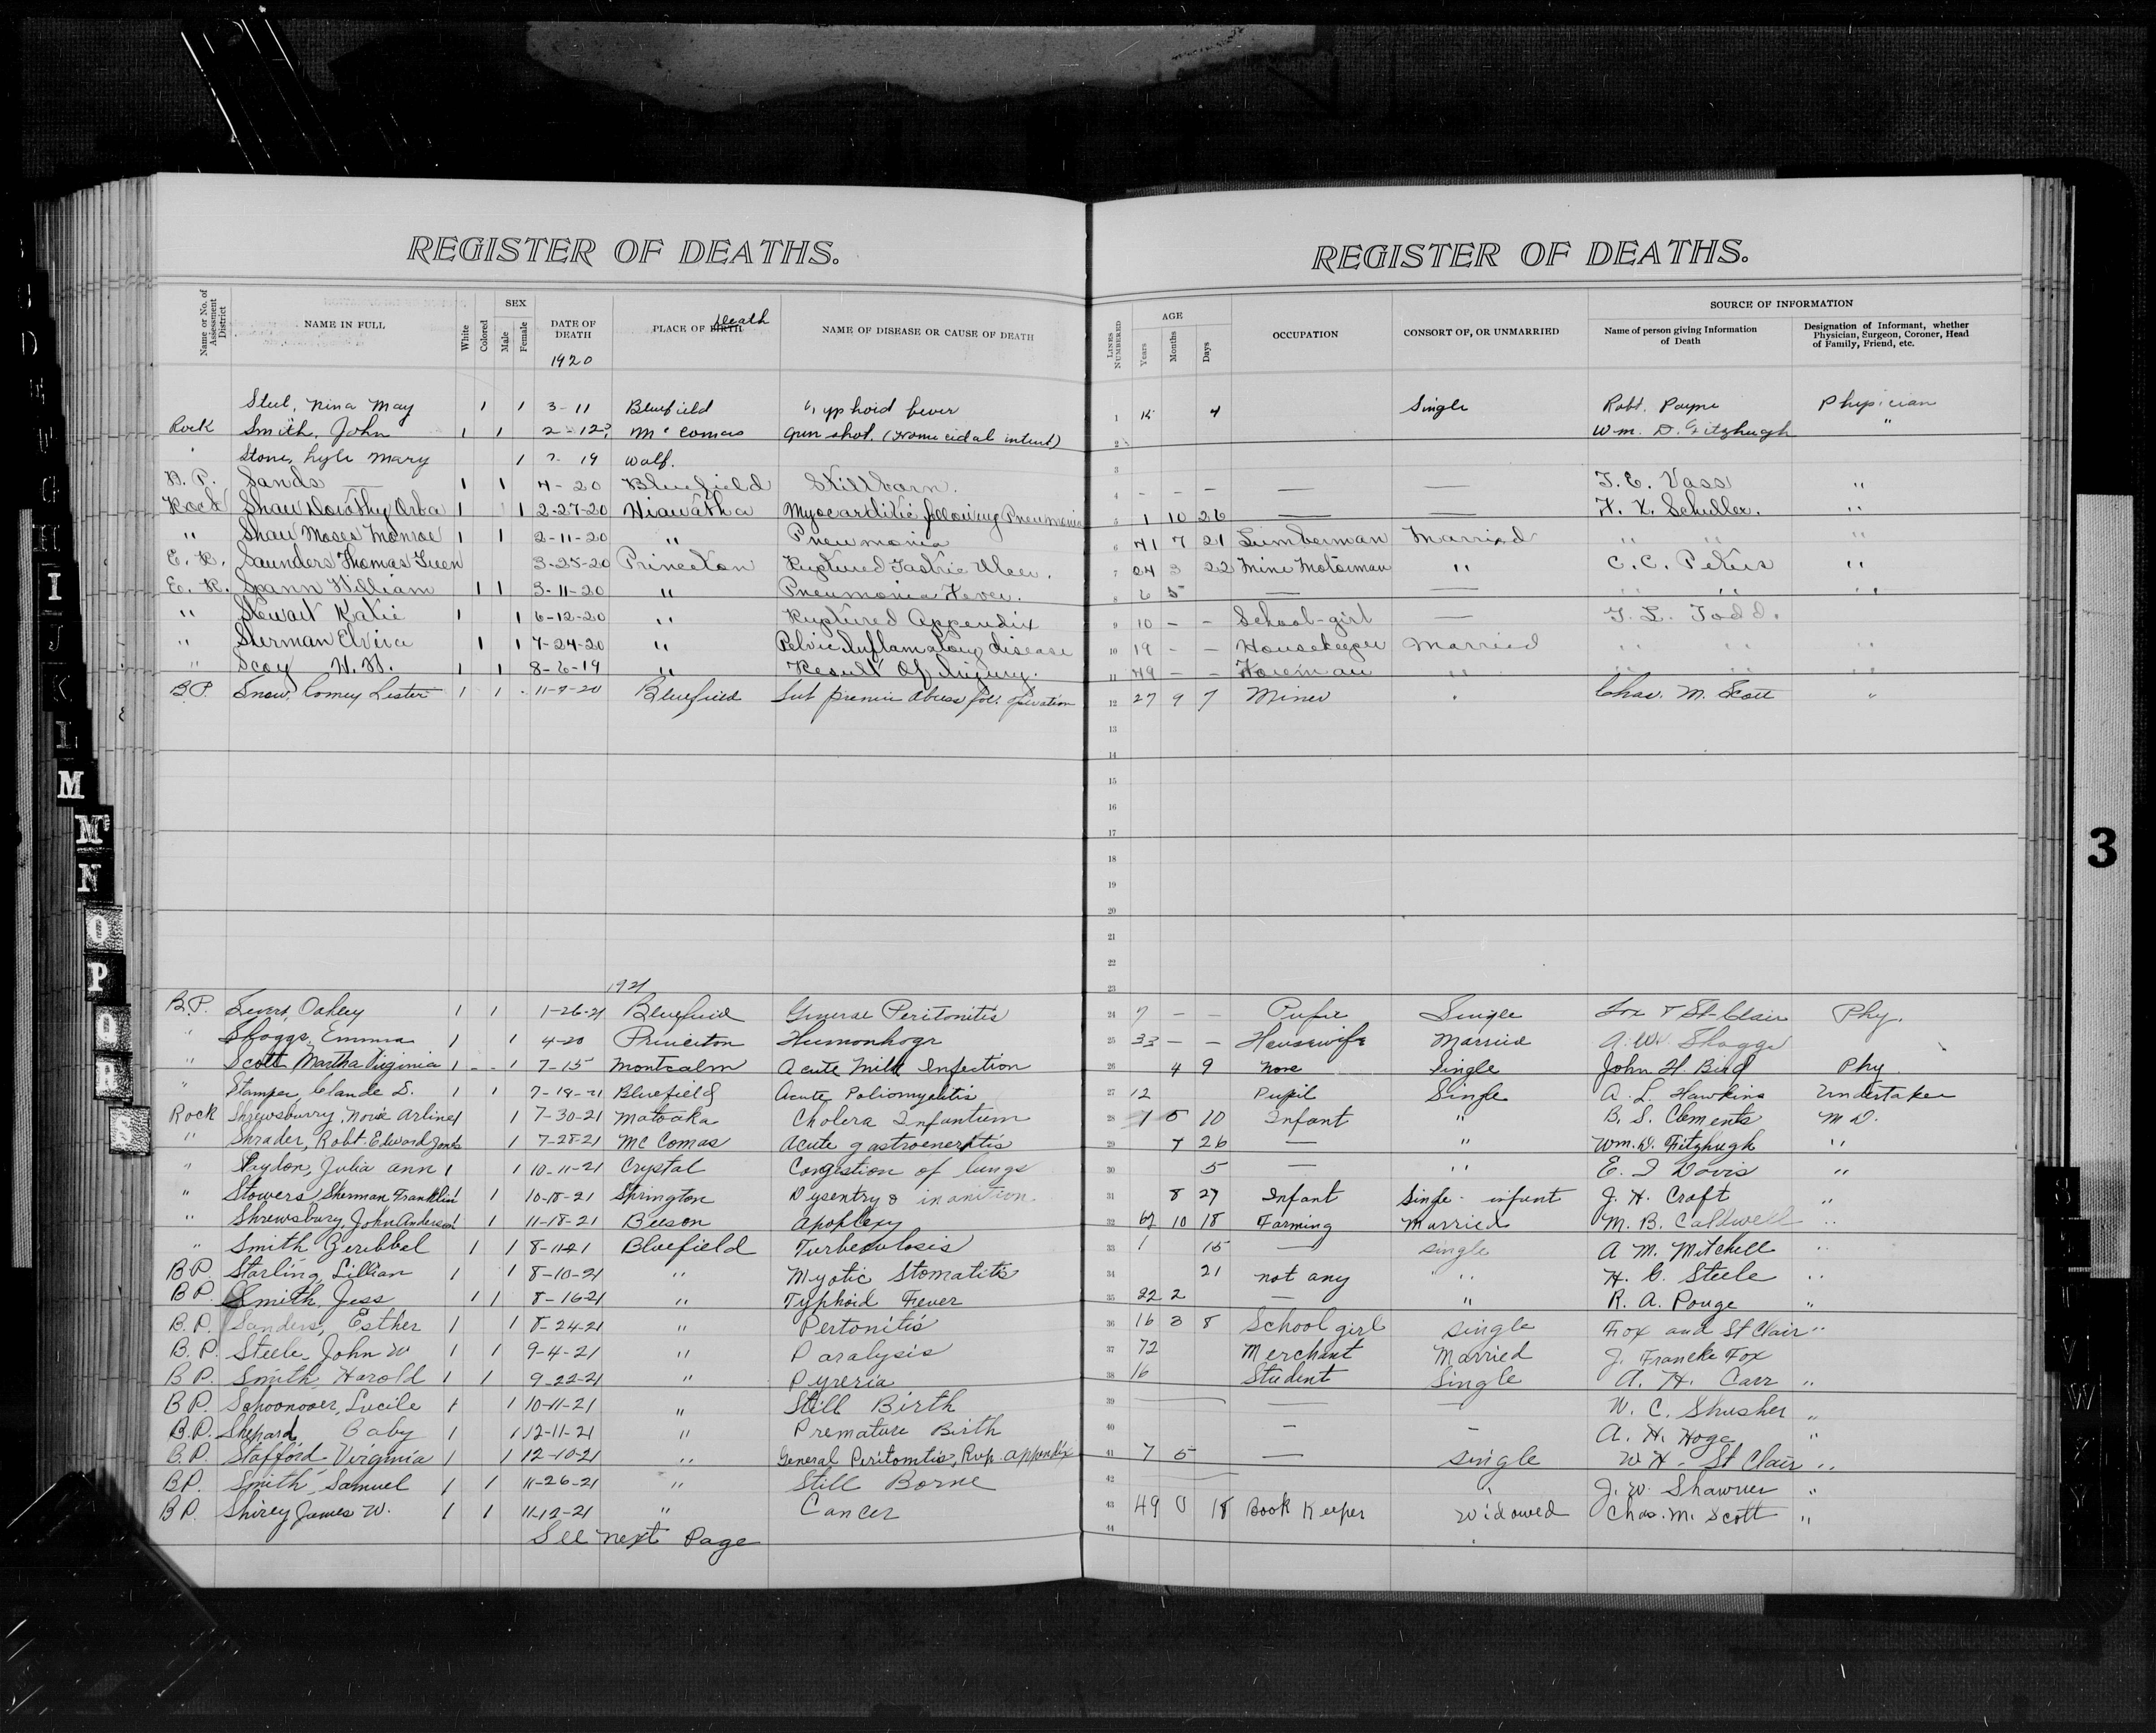 REGISTER OF DEATHS. REGISTER OF DEATHS.
Name or No. of Assessment District NAME IN FULL White Colored SEX Male Female DATE OF DEATH PLACE OF BIRTH Death NAME OF DISEASE OR CAUSE OF DEATH LINES NUMBERED AGE Years Months Days OCCUPATION CONSORT OF, OR UNMARRIED SOURCE OF INFORMATION Name of person giving Information of Death Designation of Informant, whether Physician, Surgeon, Coroner, Head of Family, Friend, etc.
1920
Steel, Nina May 1 1 3-11 Bluefield Typhoid fever 1 4 Single Robt. Payne Physician
Rock Smith, John 1 1 2-12 McComas Gun shot. (Homicidal intent) 2 Wm. D. Fitzhugh "
" Stone, Lyle Mary 1 19 Wolf. 3
B. P. Sands — 1 1 4-20 Bluefield Stillborn. 4 - - - — — T. E. Vass "
Rock Shaw Dorothy Orba 1 1 2-27-20 Hiawatha Myocarditis following Pneumonia 5 1 10 26 — — "
" Shaw Moses Monroe 1 1 2-11-20 " Pneumonia 6 41 7 21 Lumberman Married " " "
E. R. Saunders Thomas 3-25-20 Princeton Ruptured Gastric Ulcer. 7 24 3 22 Mine Motorman " C. C. Peters "
E. R. Spann William 1 1 3-11-20 " Pneumonia Fever. 8 6 5 — — " " "
" Stewart Katie 1 1 6-12-20 " Ruptured Appendix 9 10 - - School-girl — T. L. Todd.
" Sherman Elvira 1 1 7-24-20 " Pelvic Inflamatory disease 10 19 - - Housekeeper Married " " "
" H. H. 1 1 8-6-19 " Result Of Injury. 11 49 - - Foreman " " " "
B.P. Snow, Comey Lester 1 1 11-9-20 Bluefield operation 12 27 9 7 Miner Chas. M. Scott "
13
14
15
16
17
18
19
20
21
22
1921 23
B.P. Oakley 1 1 1-26-21 Bluefield General Peritonitis 24 7 - - Pupil Single Fox & St-Clair Phy.
" Skaggs, Emma 1 1 4-20 Princeton 25 33 - - Housewife Married A. W. Skaggs
" Scott Martha Virginia 1 1 7-15 Montcalm Acute Milk Infection 26 4 9 None Single John H. Bird Phy.
" Stamper Claude S. 1 1 7-18-21 Bluefield Acute Poliomyelitis 27 12 Pupil Single A. L. Hawkins Undertaker
Rock Shrewsburry, Novie Arline 1 1 7-30-21 Matoaka Cholera Infantum 28 1 5 10 Infant " B. S. Clements M D.
" Shrader, Robt. Edward 1 7-28-21 McComas Acute gastroenertis 29 7 26 — " Wm. D. Fitzhugh "
" Julia Ann 1 1 10-11-21 Crystal Congestion of lungs 30 5 — " E. I Davis "
" Stowers, Sherman Franklin 1 1 10-18-21 Springton Dysentry & inanition. 31 8 27 Infant Single - infant J. H. Craft "
" Shrewsbury, John Anderson 1 1 11-18-21 Beeson Apoplexy 32 10 18 Farming Married M. B. Caldwell "
" Smith 1 1 Bluefield Turbeculosis 33 1 15 — single A M. Mitchell "
B.P. Starling, Lillian 1 1 8-10-21 " Myotic Stomatitis 34 21 not any " H. G. Steele "
B.P. Smith, Jess 1 1 8-16-21 " Typhoid Fever 35 22 2 — " R. A. Pouge "
B.P. Sanders, Esther 1 1 8-24-21 " Pertonitis 36 16 3 8 School girl single Fox and St Clair "
B.P. Steele, John W 1 1 9-4-21 " Paralysis 37 72 Merchant Married J. Francke Fox
B.P. Smith, Harold 1 1 9-22-21 " Pyreria 38 16 Student Single A. H. Carr "
B.P. Schoonover, Lucile 1 1 10-11-21 " Still Birth 39 — — W. C. Slusher "
B.P. Shepard Baby 1 1 12-11-21 " Premature Birth 40 - - A. H. Hoge "
B.P. Stafford Virginia 1 1 12-10-21 " General Peritonitis, Rup. appendix 41 7 5 — single W H. St Clair "
B.P. Smith Samuel 1 1 11-26-21 " Still Borne 42 J. W. Shawver "
B.P. Shirey James W. 1 1 11-12-21 " Cancer 43 49 0 18 Book Keeper Widowed Chas. M. Scott "
See next Page 44
H
I
J
K
L
M
Mc
N
O
P
Q
R
S
3